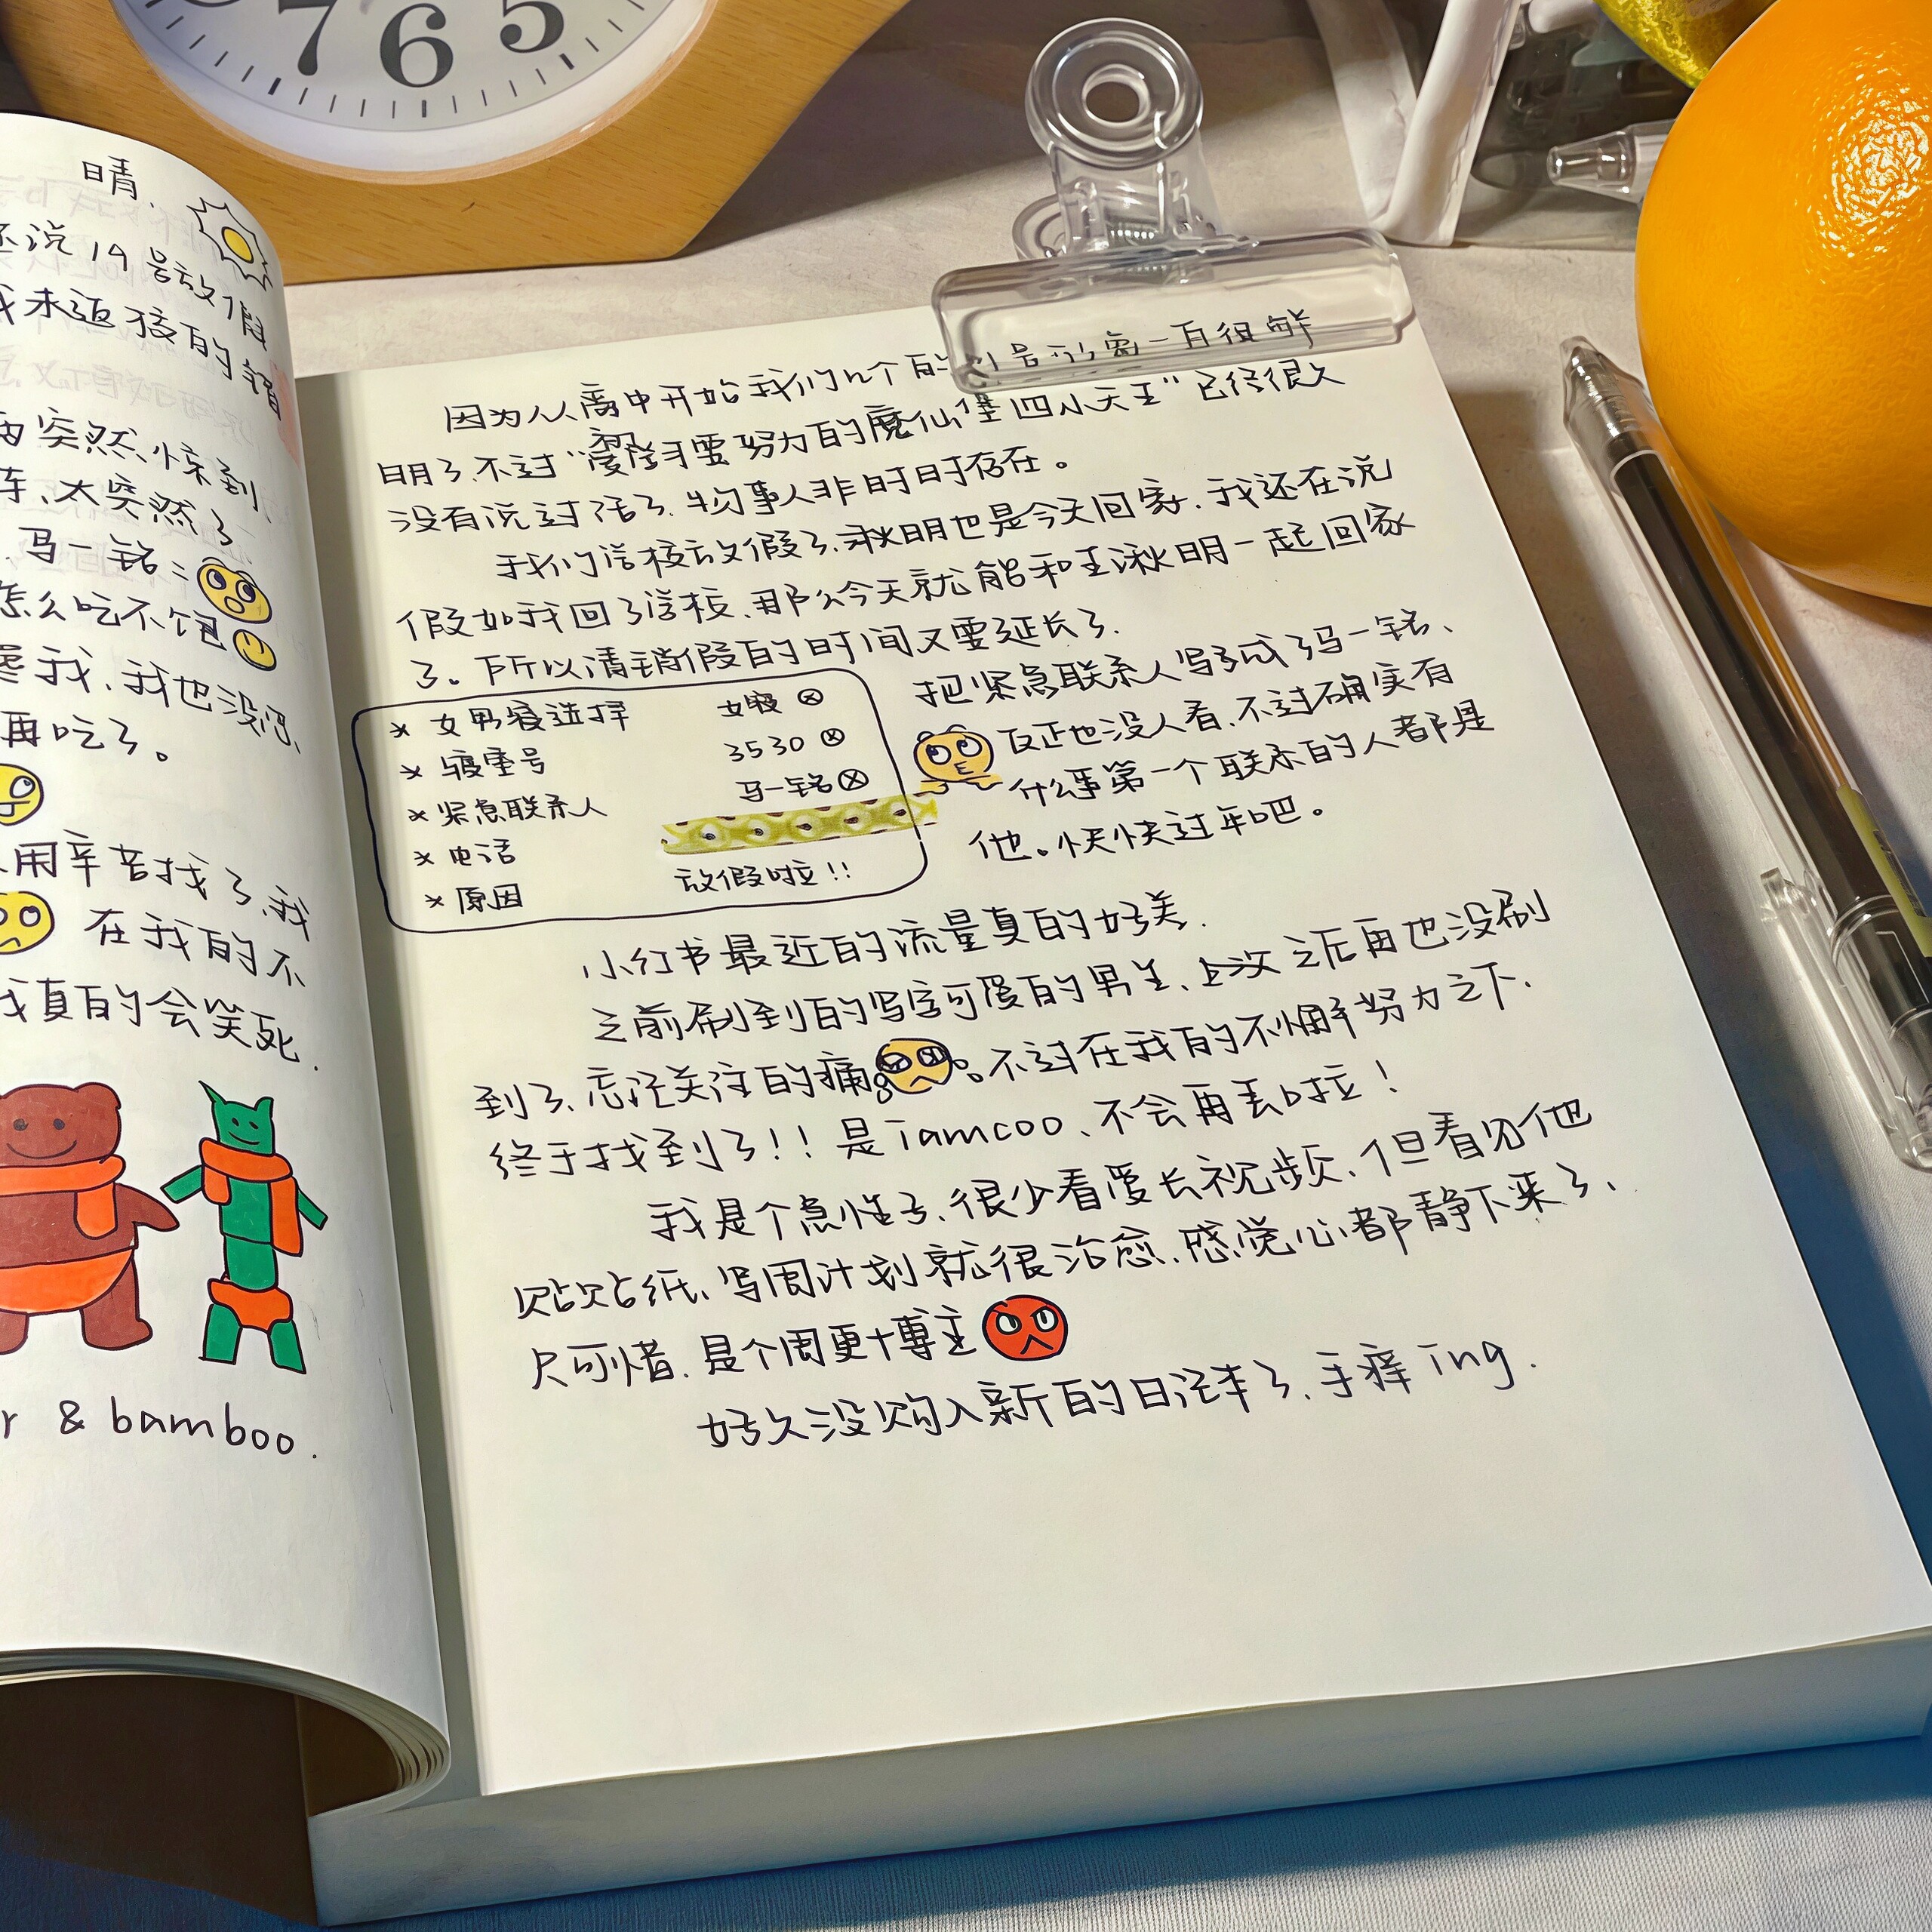 7 6 5
晴.
还说19号放假
我未返孩的销
突然惊到、
车、太突然了
马一铭:
怎么吃不饱
我、我也没吃、
再吃了。
用辛苦找了、我
在我的不
我真的会笑死.
r & bamboo.
因为从高中开始我们几个的别号形象一直很鲜
明了、不过“爱学习要努力的魔仙堡四小天王”已经很久
没有说过话了、物事人非时时存在。
我们学校放假了、秋明也是今天回家、我还在说
假如我回了学校、那么今天就能和王湫明一起回家
了。所以请销假的时间又要延长了.
* 女男寝选择 女寝 ⊗
* 寝室号 3530 ⊗
* 紧急联系人 马一铭 ⊗
* 电话
* 原因 放假啦!!
把紧急联系人写成了马一铭、
反正也没人看、不过确实有
什么事第一个联系的人都是
他。快快过年吧。
小红书最近的流量真的好差.
之前刷到的写字可爱的男生、上次之后再也没刷
到了、忘记关注的痛。不过在我的不懈努力之下、
终于找到了!! 是iamcoo、不会再丢啦!
我是个急性子、很少看爱长视频、但看见他
贴贴纸、写周计划就很治愈、感觉心都静下来了、
只可惜、是个周更博主
好久没购入新的日记本了、手痒ing.